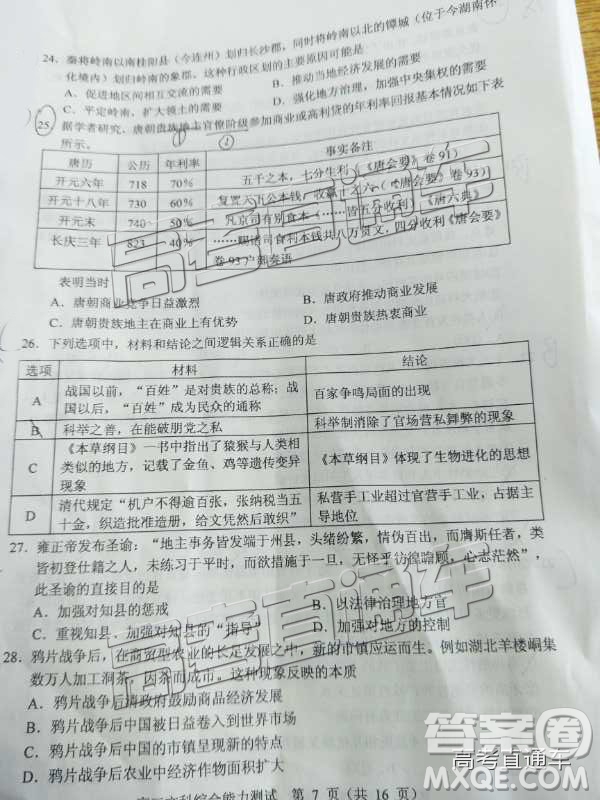 24. 秦将岭南以南桂阳县（今连州）划归长沙郡，同时将岭南以北的镡城（位于今湖南怀
化境内）划归岭南的象郡。这种行政区划的主要原因可能是
A. 促进地区间相互交流的需要 B. 推动当地经济发展的需要
C. 平定岭南、扩大领土的需要 D. 强化地方治理，加强中央集权的需要
25. 据学者研究，唐朝贵族地主官僚阶级参加商业或高利贷的年利率回报基本情况如下表
所示。
唐历 公历 年利率 事实备注
开元六年 718 70% 五千之本，七分生利（《唐会要》卷 91）
开元十八年 730 60% 复置天下公本钱，收赢十之六（《唐会要》卷 93）
开元末 740 50% 凡京司有别食本（……皆五分收利）《唐六典》
长庆三年 823 40% ……赐诸司食利本钱共八万贯文，四分收利《唐会要》
卷 93
表明当时
A. 唐朝商业竞争日益激烈 B. 唐政府推动商业发展
C. 唐朝贵族地主在商业上有优势 D. 唐朝贵族热衷商业
26. 下列选项中，材料和结论之间逻辑关系正确的是
选项 材料 结论
A 战国以前，“百姓”是对贵族的总称；战
国以后，“百姓”成为民众的通称 百家争鸣局面的出现
B 科举之善，在能破朋党之私 科举制消除了官场营私舞弊的现象
C 《本草纲目》一书中指出了猿猴与人类相
类似的地方，记载了金鱼、鸡等遗传变异
现象 《本草纲目》体现了生物进化的思想
D 清代规定“机户不得逾百张，张纳税当五
十金，织造批准造册，给文凭然后敢织” 私营手工业超过官营手工业，占据主
导地位
27. 雍正帝发布圣谕：“地主事务皆发端于州县，头绪纷繁，情伪百出，而膺斯任者，类
皆初登仕籍之人，未练习于平时，而欲措施于一旦，无怪乎彷徨瞻顾，心志茫然”，
此圣谕的直接目的是
A. 加强对知县的惩戒 B. 以法律治理地方官
C. 重视知县、加强对知县的“指导” D. 加强对地方的控制
28. 鸦片战争后，在商贸型农业的长足发展之中，新的市镇应运而生。例如湖北羊楼峒集
数万人加工洞茶，因茶而成市。这种现象反映的本质
A. 鸦片战争后清政府鼓励商品经济发展
B. 鸦片战争后中国被日益卷入到世界市场
C. 鸦片战争后中国的市镇呈现新的特点
D. 鸦片战争后农业中经济作物面积扩大
文科综合能力测试 第 7 页（共 16 页）
高考直通车
高考直通车
答案圈
高考直通车